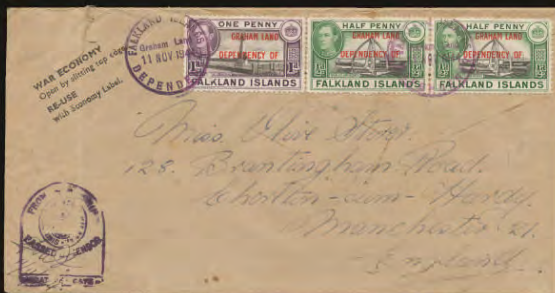 WAR ECONOMY
Open by slitting top edge
RE-USE
with Economy Label.
FALKLAND
Graham Land
11 NOV 194
DEPEND
ONE PENNY
GRAHAM LAND
DEPENDENCY OF
1D
FALKLAND ISLANDS
HALF PENNY
GRAHAM LAND
DEPENDENCY OF
FALKLAND ISLANDS
HALF PENNY
GRAHAM LAND
DEPENDENCY OF
FALKLAND ISLANDS
Miss. Olive
128. Brantingham Road.
Chorlton-cum-Hardy.
Manchester 21.
England.
FROM
PASSED CENSOR